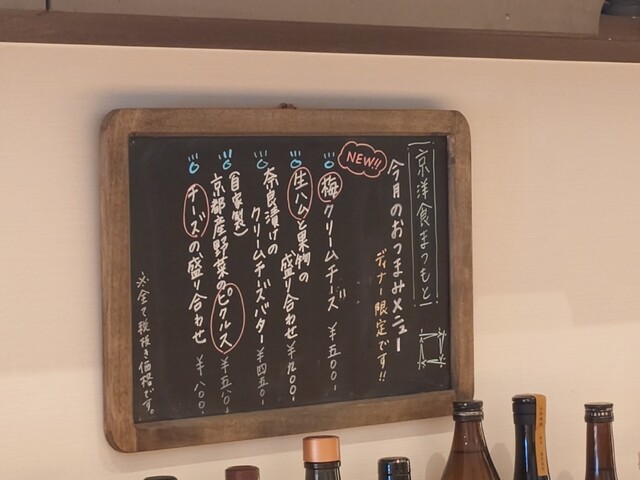 京洋食まつもと
今月のおつまみメニュー
ディナー限定です!!
NEW!!
梅クリームチーズ ¥五〇〇-
生ハムと果物の
盛り合わせ ¥九〇〇-
奈良漬けの
クリームチーズバター ¥四五〇-
(自家製)
京都産野菜のピクルス ¥五八〇-
チーズの盛り合わせ ¥八〇〇-
※全て税抜き価格です。